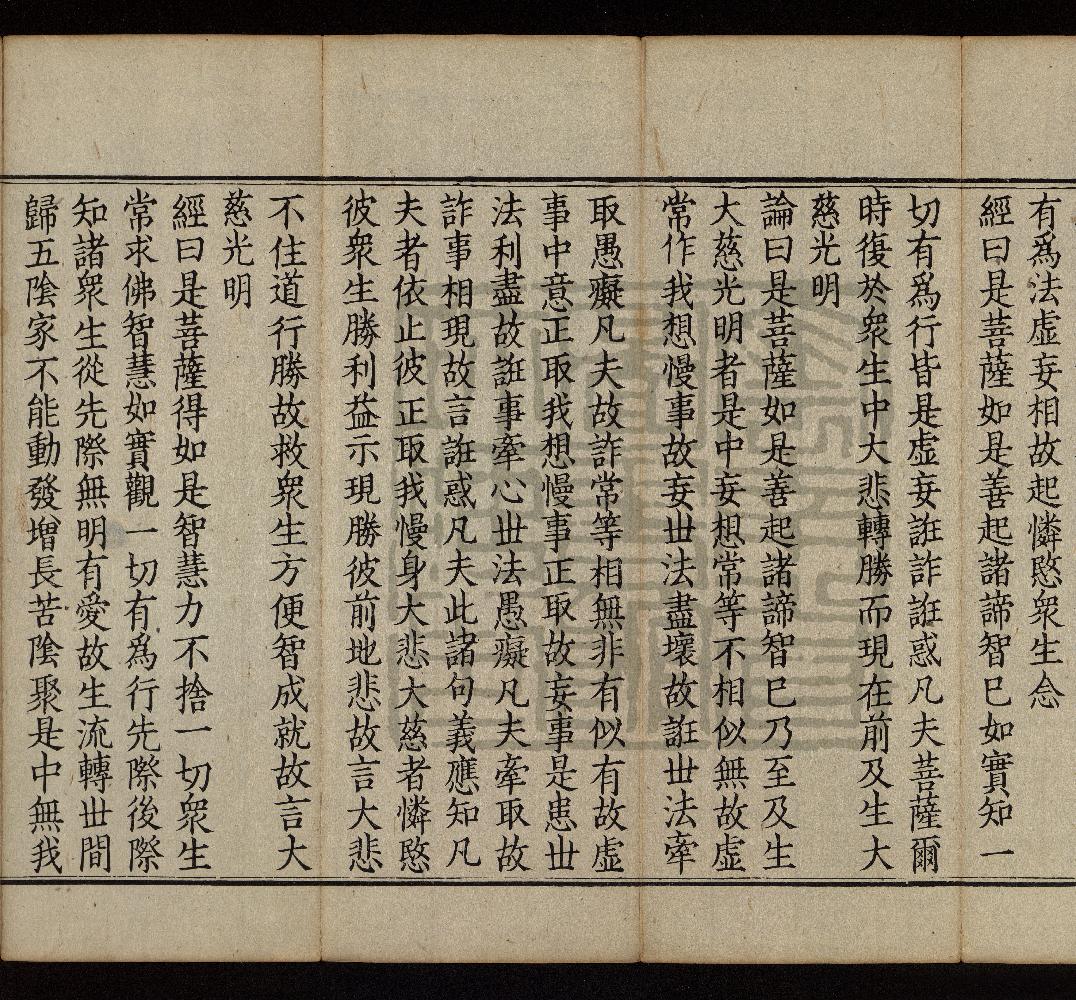 有為法虛妄相故起憐愍衆生念
經曰是菩薩如是善起諸諦智巳如實知一
切有為行皆是虛妄誑詐誑惑凡夫菩薩爾
時復於衆生中大悲轉勝而現在前及生大
慈光明
論曰是菩薩如是善起諸諦智巳乃至及生
大慈光明者是中妄想常等不相似無故虛
常作我想慢事故妄世法盡壞故誑世法牽
取愚癡凡夫故詐常等相無非有似有故虛
事中意正取我想慢事正取故妄事是患世
法利盡故誑事牽心世法愚癡凡夫牽取故
詐事相現故言誑惑凡夫此諸句義應知凡
夫者依止彼正取我慢身大悲大慈者憐愍
彼衆生勝利益示現勝彼前地悲故言大悲
不住道行勝故救衆生方便智成就故言大
慈光明
經曰是菩薩得如是智慧力不捨一切衆生
常求佛智慧如實觀一切有為行先際後際
知諸衆生從先際無明有愛故生流轉世間
歸五陰家不能動發增長苦陰聚是中無我